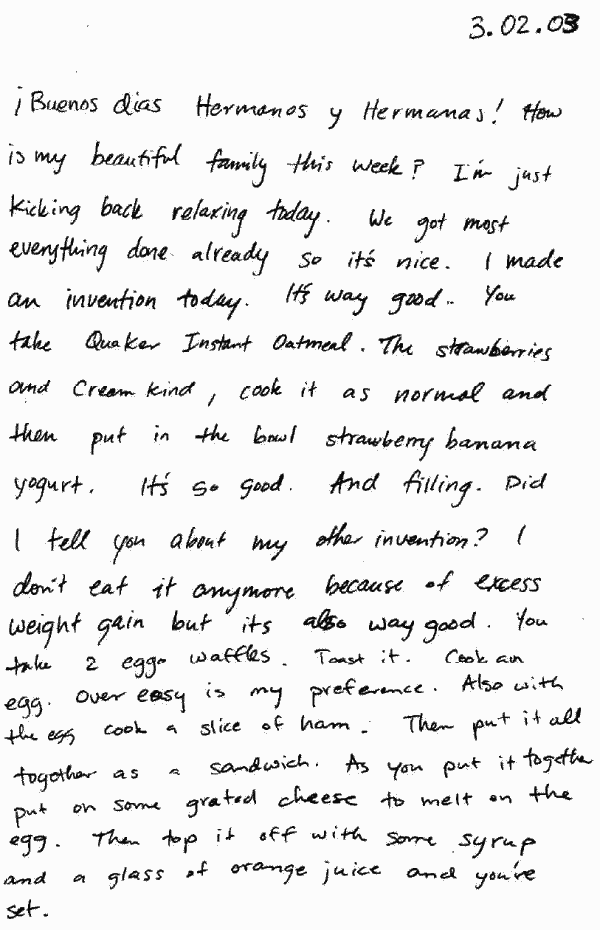 3.02.03
¡Buenos dias Hermanos y Hermanas! How
is my beautiful family this week? I'm just
kicking back relaxing today. We got most
everything done already so it's nice. I made
an invention today. It's way good.. You
take Quaker Instant Oatmeal. The strawberries
and Cream kind, cook it as normal and
then put in the bowl strawberry banana
yogurt. It's so good. And filling. Did
I tell you about my other invention? I
don't eat it anymore because of excess
weight gain but its also way good. You
take 2 eggo waffles. Toast it. Cook an
egg. Over easy is my preference. Also with
the egg cook a slice of ham. Then put it all
together as a sandwich. As you put it together
put on some grated cheese to melt on the
egg. Then top it off with some syrup
and a glass of orange juice and you're
set.